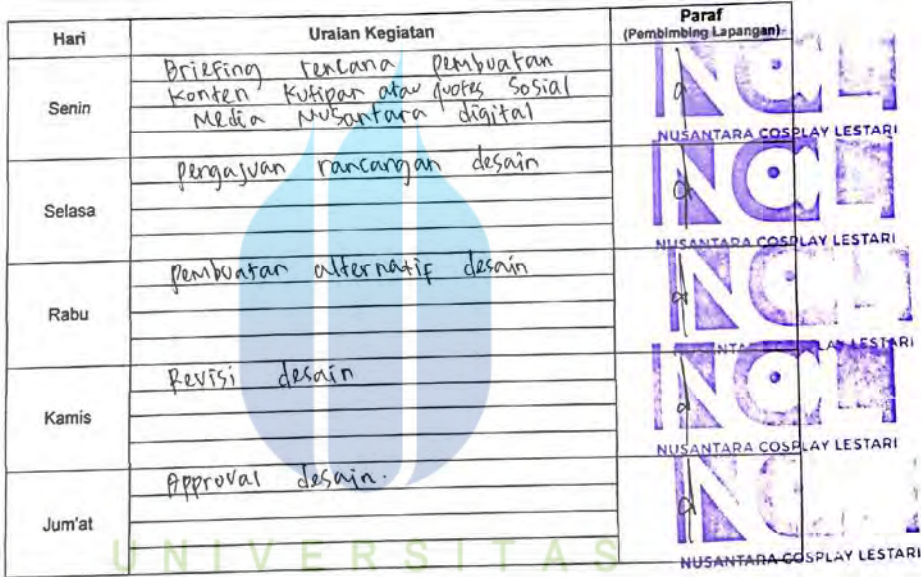 Hari Uraian Kegiatan Paraf
(Pembimbing Lapangan)
Senin
Briefing rencana pembuatan
konten kutipan atau quotes Sosial
Media Nusantara digital
NUSANTARA COSPLAY LESTARI
Selasa
pengajuan rancangan desain
NUSANTARA COSPLAY LESTARI
Rabu
pembuatan alternatif desain
LESTARI
Kamis
Revisi desain
NUSANTARA COSPLAY LESTARI
Jum'at
Approval desain.
UNIVERSITAS
NUSANTARA COSPLAY LESTARI